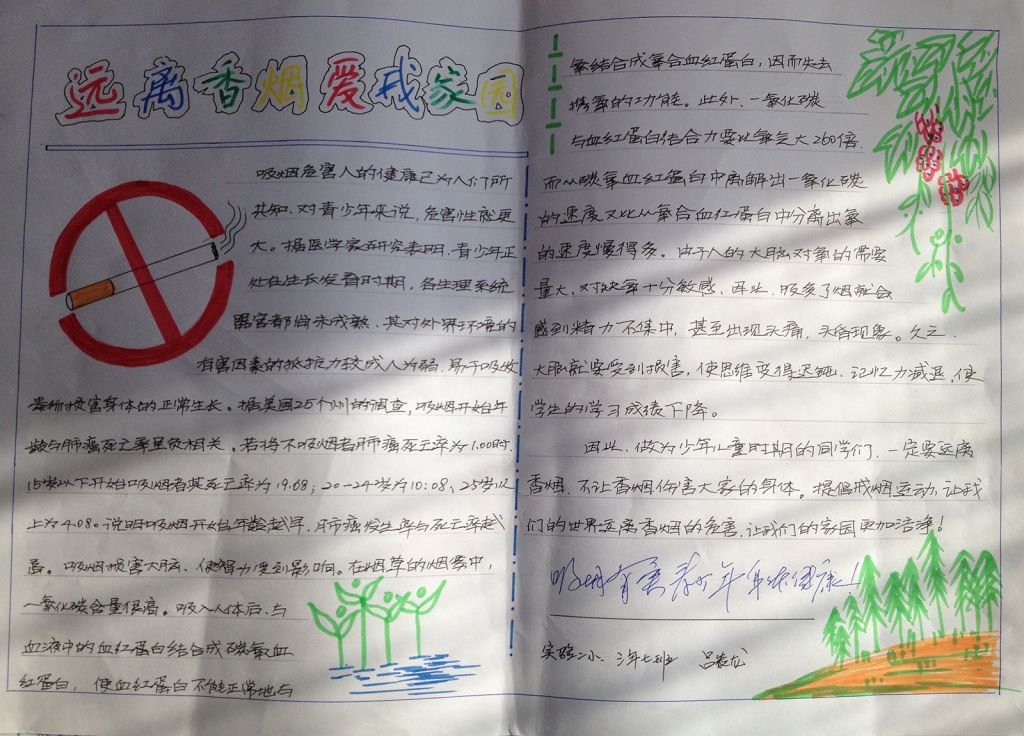 远离香烟 爱我家园
吸烟危害人的健康已为人们所
共知.对青少年来说,危害性就更
大。据医学家研究表明,青少年正
处在生长发育时期,各生理系统
器官都尚未成熟.其对外界环境的
有害因素的抵抗力较成人为弱.易于吸收
毒物损害身体的正常生长。据美国25个州的调查,吸烟开始年
龄与肺癌死亡率呈负相关。若将不吸烟者肺癌死亡率为1.00时.
15岁以下开始吸烟者其死亡率为19.68;20-24岁为10:08、25岁以
上为4.08。说明吸烟开始年龄越早,肺癌发生率与死亡率越
高。吸烟损害大脑、使智力受到影响。在烟草的烟雾中,
一氧化碳含量很高。吸入人体后.与
血液中的血红蛋白结合成碳氧血
红蛋白,使血红蛋白不能正常地与
氧结合成氧合血红蛋白,因而失去
携氧的功能。此外.一氧化碳
与血红蛋白结合力要比氧气大260倍.
而从碳氧血红蛋白中离解出一氧化碳
的速度又比从氧合血红蛋白中分离出氧
的速度慢得多。由于人的大脑对氧的需要
量大.对缺氧十分敏感.因此.吸多了烟就会
感到精力不集中,甚至出现头痛,头昏现象。久之.
大脑就要受到损害,使思维变得迟钝.记忆力减退,使
学生的学习成绩下降。
因此.做为少年儿童时期的同学们.一定要远离
香烟.不让香烟伤害大家的身体。提倡戒烟运动,让我
们的世界远离香烟的危害,让我们的家园更加洁净!
吸烟有害青少年身体健康!
实验二小 三年七班 吕龙